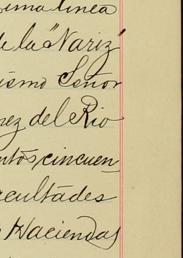 ima linea
de la "Nariz"
ismo Señor
rez del Rio
ntos, cincuen
acultades
Haciendas